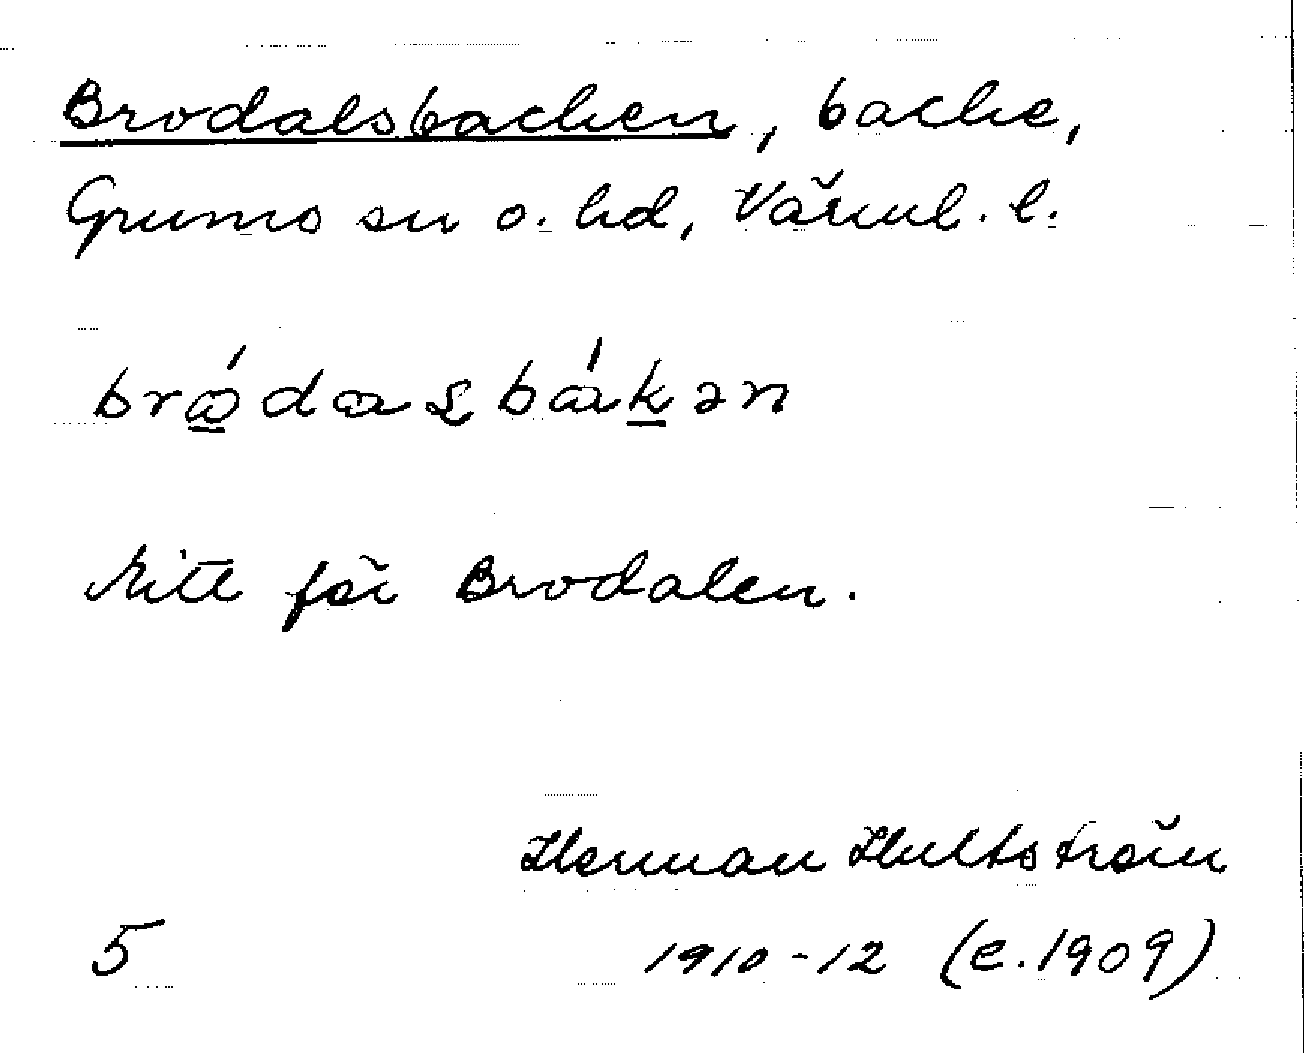 Brodalsbacken, backe,
Grums sn o. hd, Värml. l.
brǿdasbákən
Mitt för Brodalen.
Herman Hultström
5 1910-12 (e. 1909)